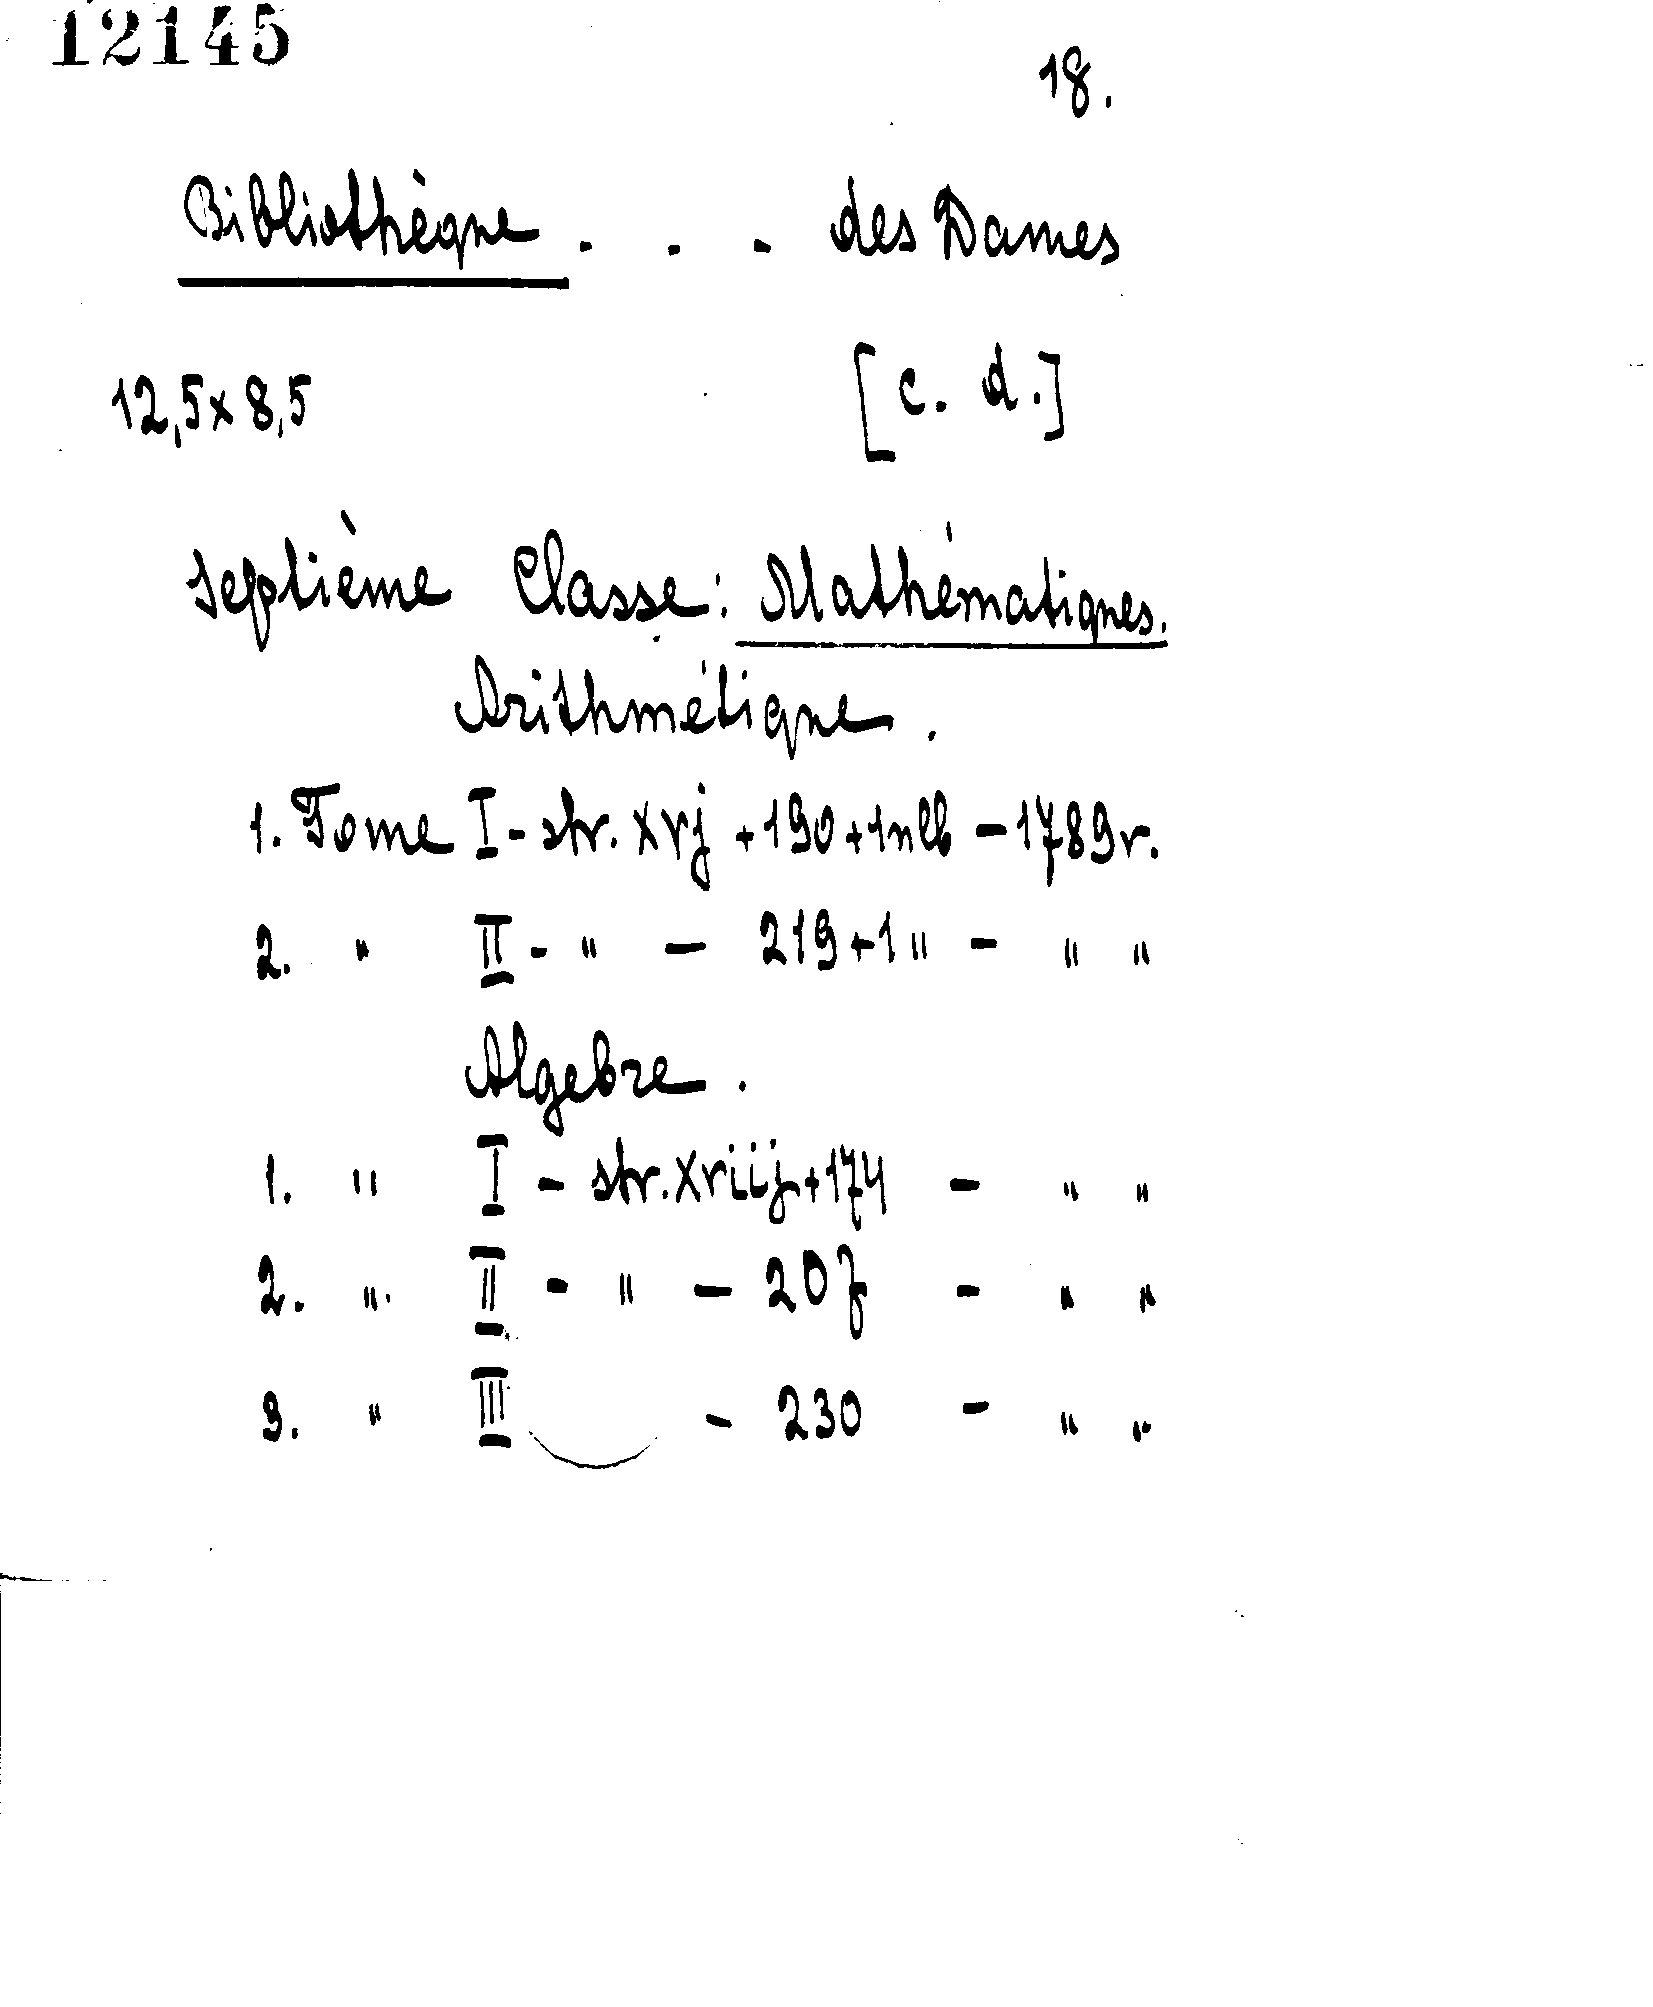 12145
18.
Bibliothèque . . . des Dames
12,5 x 8,5 [c. d.]
Septième Classe: Mathématiques.
Arithmétique.
1. Tome I - str. xvj + 190 + 1 nlb - 1789 r.
2. " II - " - 219 + 1 " - " "
Algebre.
1. " I - str. xviij + 174 - " "
2. " II - " - 207 - " "
3. " III - 230 - " "